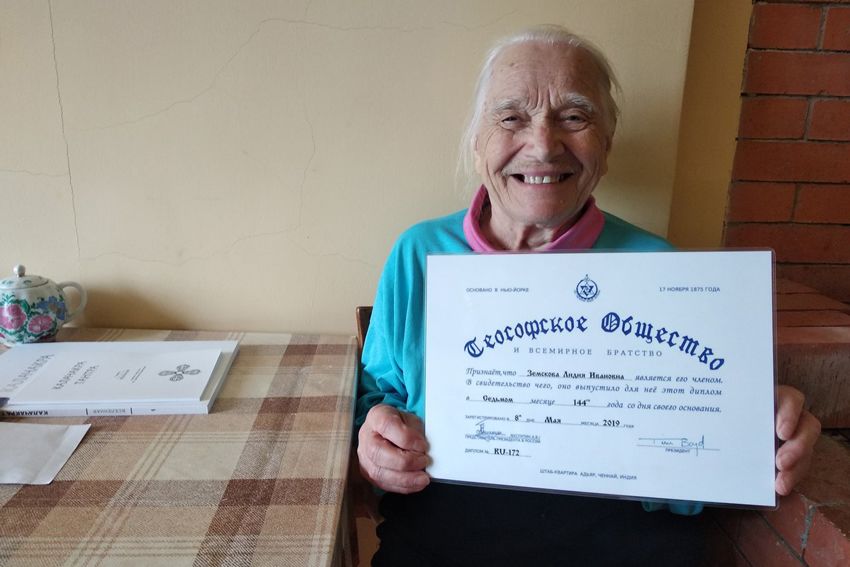 ОСНОВАНО В НЬЮ-ЙОРКЕ
17 НОЯБРЯ 1875 ГОДА
Теософское Общество
И ВСЕМИРНОЕ БРАТСТВО
Признаёт, что Земскова Лидия Ивановна является его членом.
В свидетельство чего, оно выпустило для неё этот диплом
в Седьмом месяце 144м года со дня своего основания.
ЗАРЕГИСТРИРОВАНО В 8й ДЕНЬ Мая МЕСЯЦА 2019 ГОДА
ПРЕДСТАВИТЕЛЬ ПРЕЗИДЕНТА В РОССИИ
ПРЕЗИДЕНТ
ДИПЛОМ №. RU-172
ШТАБ-КВАРТИРА: АДЬЯР, ЧЕННАИ, ИНДИЯ
КАЛАЧАКРА
КАЛАЧАКРА
ТАНТРА
КАЛАЧАКРА
ВСЕЛЕННАЯ